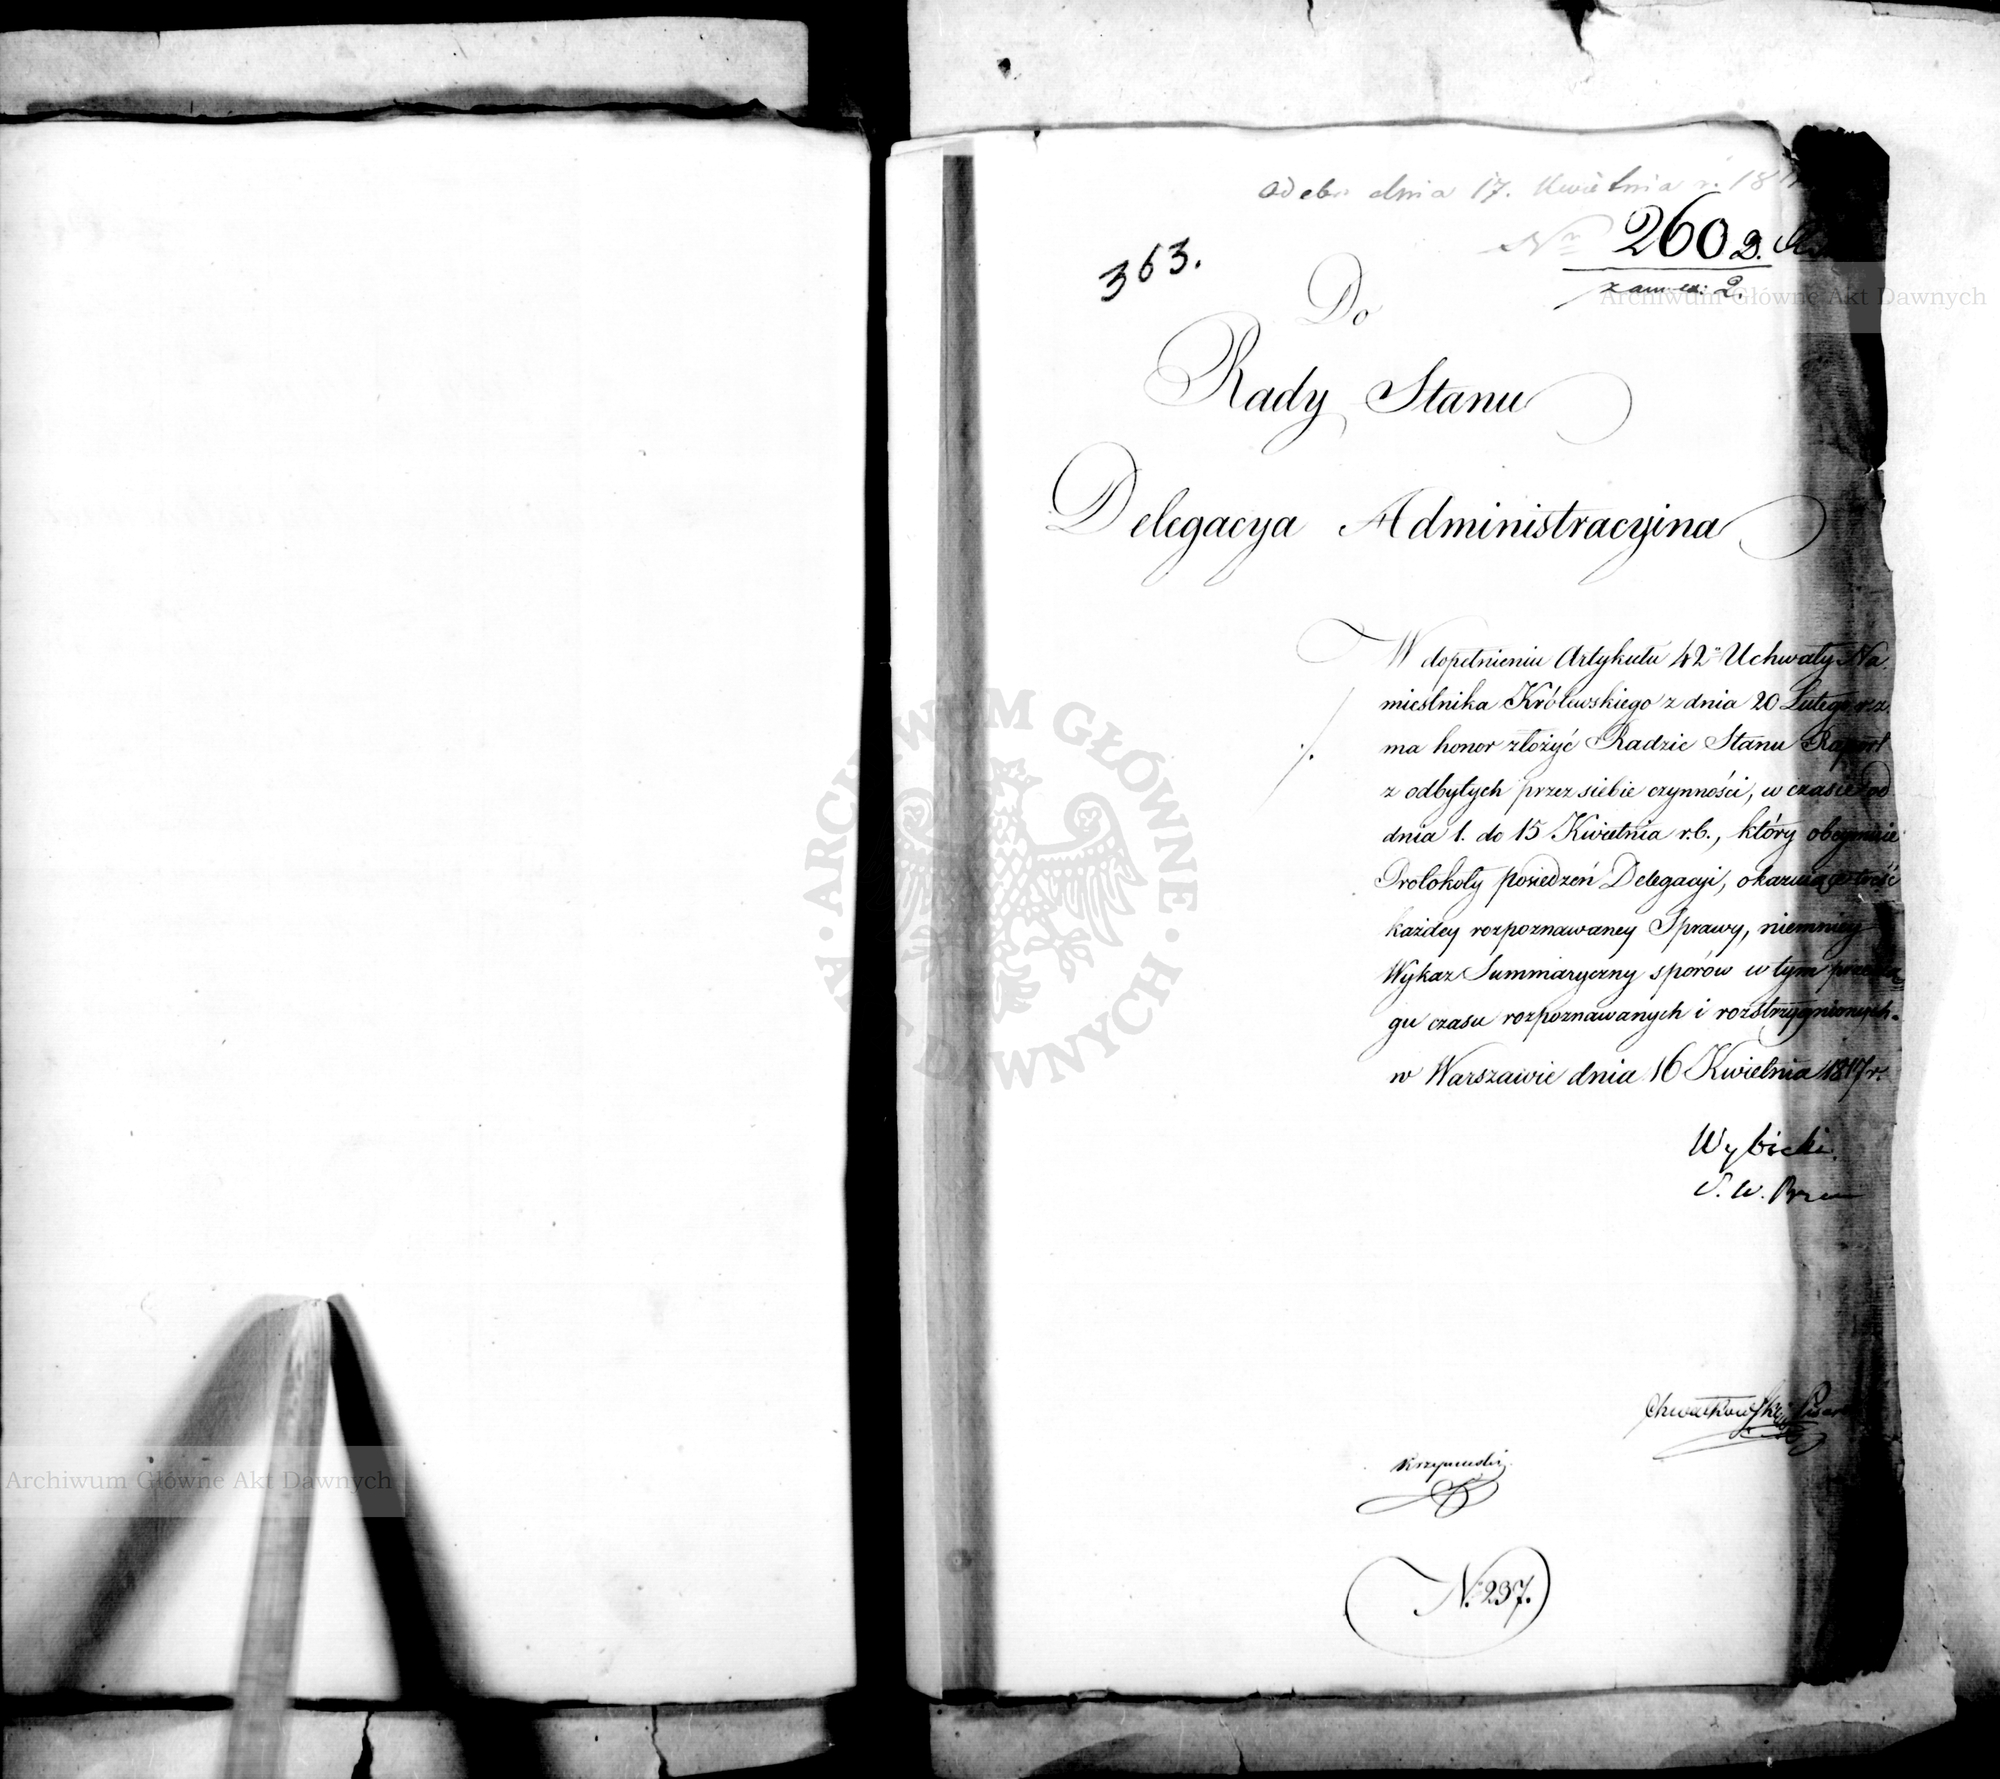 Odebr dnia 17. Kwietnia r. 18
Nr 260 D.
363.
z annex: 2.
Do
Rady Stanu
Delegacya Administracyina
W dopełnieniu Artykułu 42º Uchwały Na
miestnika Królewskiego z dnia 20 Lutego r. z.
ma honor złożyć Radzie Stanu Raport
z odbytych przez siebie czynności, w czasie od
dnia 1. do 15 Kwietnia r. b., który obeymuie
Protokoły posiedzeń Delegacyi, okazuiące treść
każdey rozpoznawaney Sprawy, niemniey
Wykaz Summaryczny sporów w tym przecią
gu czasu rozpoznawanych i rozstrzygnionych.
w Warszawie dnia 16 Kwietnia 1817 r.
Wybicki
S. W. Prezes
Chwałkowski Pisarz
Krzymuski
N. 237.
Archiwum Główne Akt Dawnych
ARCHIWUM GŁÓWNE AKT DAWNYCH
Archiwum Główne Akt Dawnych